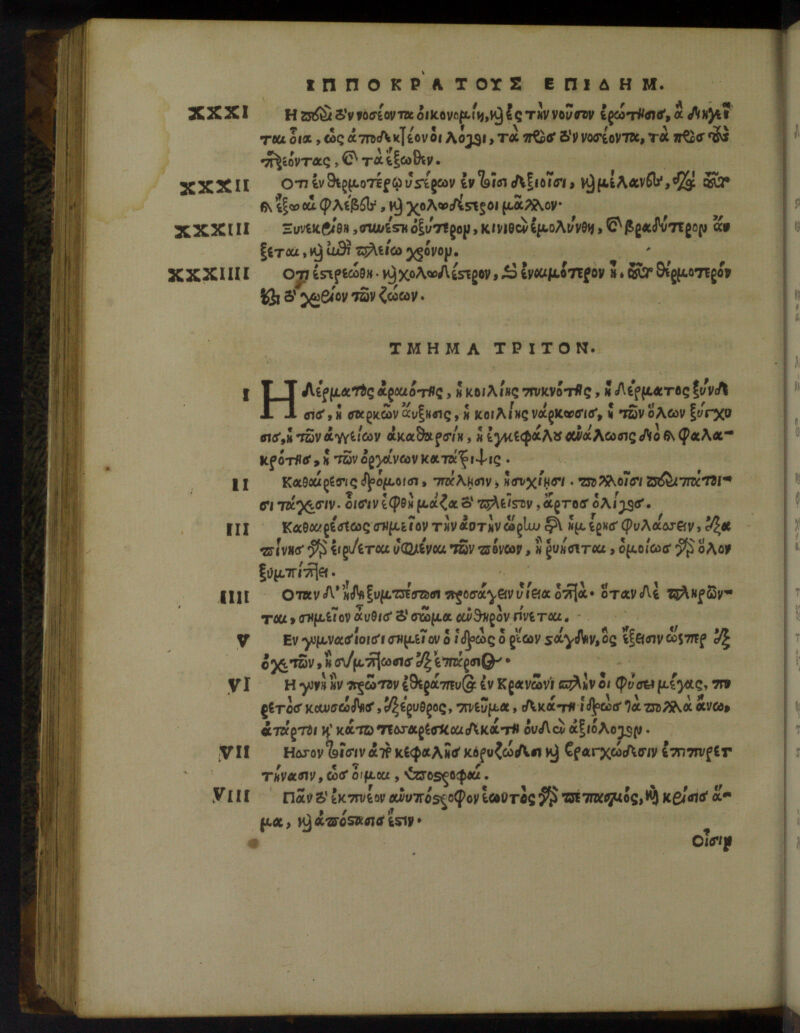 ΙΠΠΟΚΡΑΤΟΥΣ ΕΠΙΔΗΜ.
XXXI Η περὶ τὸν νοσέοντα οἰκονομίη, καὶ ἐς τὴν νοῦσον ἐρώτησις, ἃ διηγεῖ
ται οἷα, ὡς ἀποδεκτέον οἱ λόγοι, τὰ πρὸς τὸν νοσέοντα, τὰ πρὸς τοὺς
παρεόντας, καὶ τὰ ἔξωθεν.
XXXII Οτι ἐν θερμοτέρῳ ὑστέρων ἐν τοῖσι δεξιοῖσι, καὶ μέλανες, διὰ τοῦτο
καὶ ἔξω αἱ φλέβες, καὶ χολωδέστεροι μᾶλλον.
XXXIII Ξυνεκρίθη, συνέστη ὀξύτερον, κινιθὲν ἐμολύνθη, καὶ βραδύτερον αὔ
ξεται, καὶ ἐπὶ πλείω χρόνον.
XXXIIII Οτι ἐστερεώθη. καὶ χολωδέστερον, καὶ ἐναιμότερον ἢ. τοῦτο θερμοτερόν
ἐστι τὸ χωρίον τῶν ζώων.
ΤΜΗΜΑ ΤΡΙΤΟΝ.
I Η Δέρματος ἀραιότης, ἡ κοιλίης πυκνότης, ἡ δέρματος ξύνδε
σις, ἡ σαρκῶν αὔξησις, ἡ κοιλίης νάρκωσις, ἡ τῶν ὅλων ξύγχυ
σις, ἡ τῶν ἀγγείων ἀκαθαρσίη, ἡ ἐγκεφάλου ἀνάλωσις διὸ καὶ φαλα-
κρότης, ἡ τῶν ὀργάνων κατάτριψις.
II Καθαίρεσις δρόμοισι, πάλησιν, ἡσυχίησι. πολλοῖσι περιπάτοι-
σι τάχεσιν. οἷσιν ἑφθὴ μάζα τὸ πλεῖστον, ἄρτος ὀλίγος.
III Καθαιρέσεως σημεῖον τὴν ἀυτὴν ὥρην τῆς ἡμέρης φυλάσσειν, διὰ
πείνης γὰρ εἰργεται ὑφιέναι τῶν πόνων, ἢ ξύησιται, ὁμοίως γὰρ ὅλον
ξύμπίπτει.
IIII Οταν δ' ἤδη ξυμπέσωσι προσάγειν ὑγεῖα ὀπτά. ὅταν δὲ πληρῶν-
ται, σημεῖον ἀυθις τὸ σῶμα ἀνθηρὸν γίνεται.
V Εν γυμνασίοισι σημεῖον ὁ ἱδρὼς ὁ ῥέων στάγδην, ὃς ἔξεισιν ὥσπερ διὰ
ὀχετῶν, ἢ σύμπτωσις διὰ ἐπάρσιος.
VI Η γυνὴ ἣν πρῶτον ἐθεράπευσα ἐν Κρανῶνι σπλὴν οἱ φύσει μέγας, πυ
ρετὸς καυσώδης, διέρυθρος, πνεῦμα, δεκάτη ἱδρὼς τὰ πολλὰ ἄνω,
ἀτάρτοι καὶ κάτω τεσσαρεσκαιδεκάτη οὐδὲν ἀξιόλογον.
VII Ησσον τοῖσιν ἀπὸ κεφαλῆς κορυζώδεσι καὶ βραγχώδεσιν ἐπιπυρετ
τήνασιν, ὡς οἶμαι, ὑποστροφαί.
VIII Πᾶν τὸ ἐκπυέον ἀνυπόστροφον ἑωυτὸς γὰρ πεπασμός, καὶ κρίσις ἅ-
μα, καὶ ἀπόστασις ἐστιν.
Οἷσιν